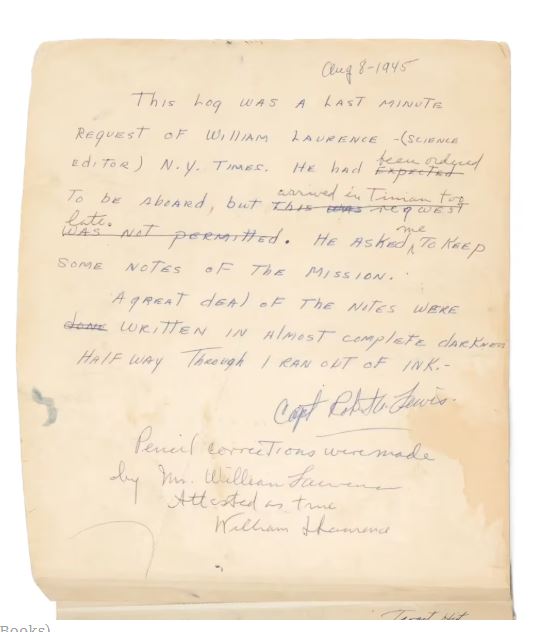 Aug 8-1945
This Log was a last minute
request of William Laurence -(science
editor) N.Y. Times. He had been ordered
expected
to be aboard, but arrived in Tinian too
this was request
late.
was not permitted. He asked me to keep
some notes of the mission.
A great deal of the notes were
done written in almost complete darkness
Half way through I ran out of ink.-
Capt Robt A. Lewis.
Pencil corrections were made
by Mr. William Laurence
Attested as true
William L Laurence
Books)